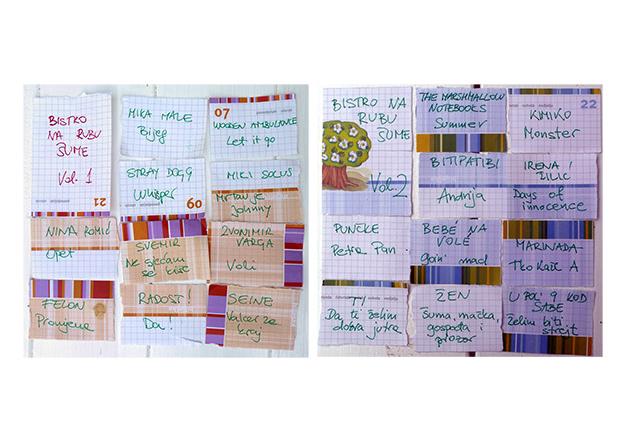 BISTRO
NA RUBU
ŠUME
Vol. 1
21
MIKA MALE
Bijeg
07
WOODEN AMBULANCE
Let it go
STRAY DOGG
Whisper
09
MIKI SOLUS
Mrtav je
Johnny
NINA ROMIĆ
Opet
SVEMIR
Ne sjećam
se kiše
ZVONIMIR
VARGA
Voli
FELON
Promjene
RADOST!
Da!
SEINE
Valcer za
kraj
BISTRO NA
RUBU
ŠUME
Vol. 2
THE MARSHMALLOW
NOTEBOOKS
Summer
22
KIMIKO
Monster
BITIPATIBI
Andrija
IRENA ŽILIĆ
Days of
innocence
PUNČKE
Petar Pan
BEBÈ NA
VOLÈ
goin' mad
MARINADA
Tko kaže A
TI
Da ti želim
dobra jutra
ŽEN
Šuma, mačka,
gospođa i
prozor
U POL 9 KOD
SABE
Želim biti
strejt